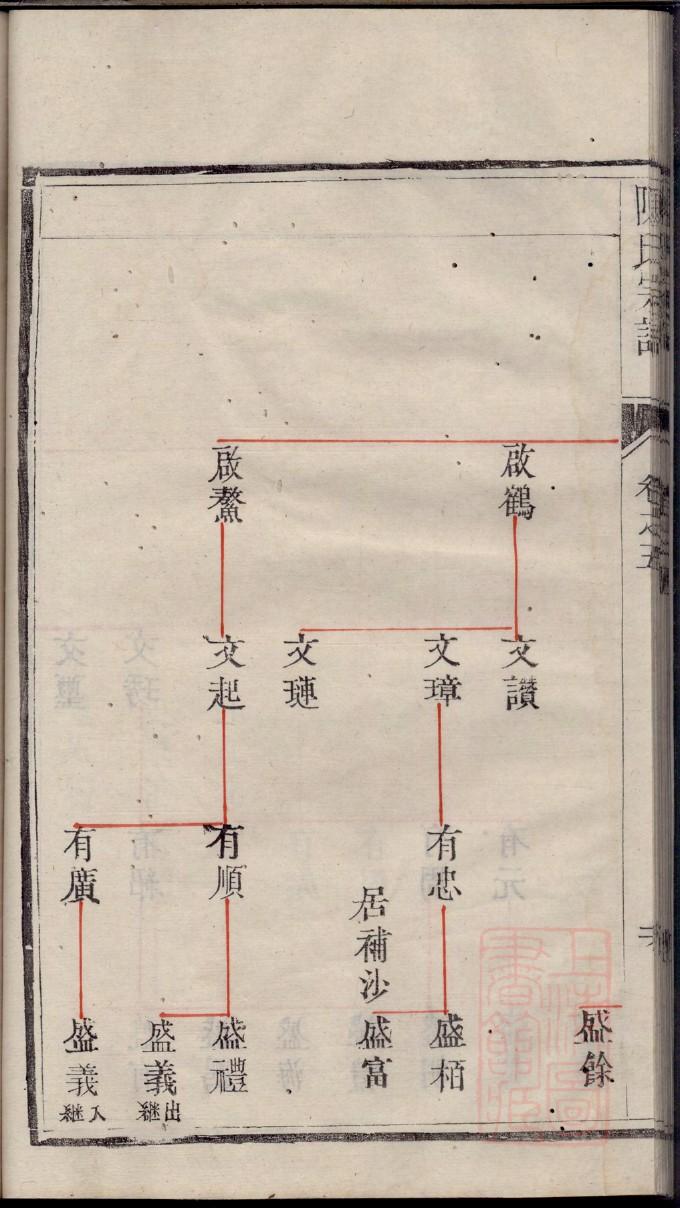 陳氏宗譜
卷之五
啟鶴
啟鰲
文讃
文璋
文璉
文起
有忠
有順
有廣
盛餘
盛栢
居補沙
盛富
盛禮
盛義
出繼
盛義
入繼